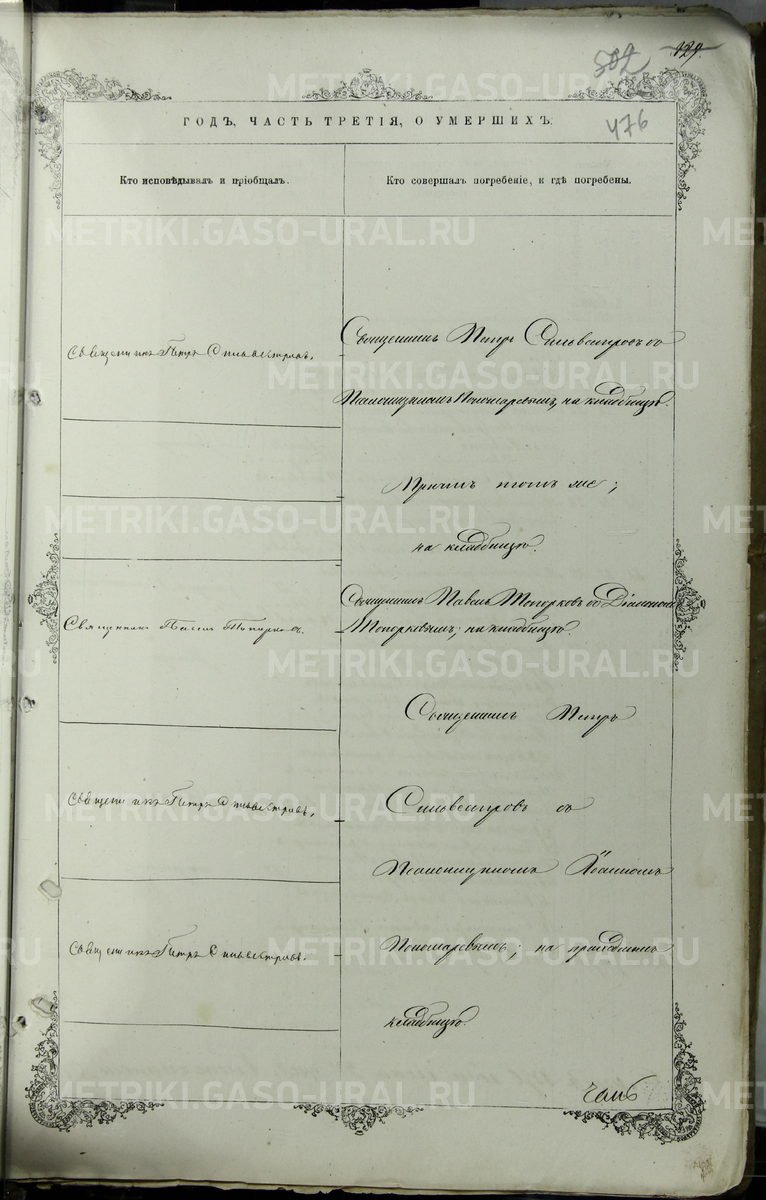 129.
302
476
ГОДЪ, ЧАСТЬ ТРЕТІЯ, О УМЕРШИХЪ.
Кто исповѣдывалъ и пріобщалъ.
Кто совершалъ погребеніе, и гдѣ погребены.
Священникъ Петръ Сильвестровъ.
Священникъ Петръ Сильвестровъ со
Псаломщикомъ Пономаревымъ, на кладбищѣ.
Причтъ тотъ же;
на кладбищѣ.
Священникъ Павелъ Топорковъ.
Священникъ Павелъ Топорковъ съ Діакономъ
Топорковымъ; на кладбищѣ.
Священникъ Петръ
Священникъ Петръ Сильвестровъ.
Сильвестровъ съ
Псаломщикомъ Іоанномъ
Священникъ Петръ Сильвестровъ.
Пономаревымъ; на приходскомъ
кладбищѣ.
METRIKI.GASO-URAL.RU